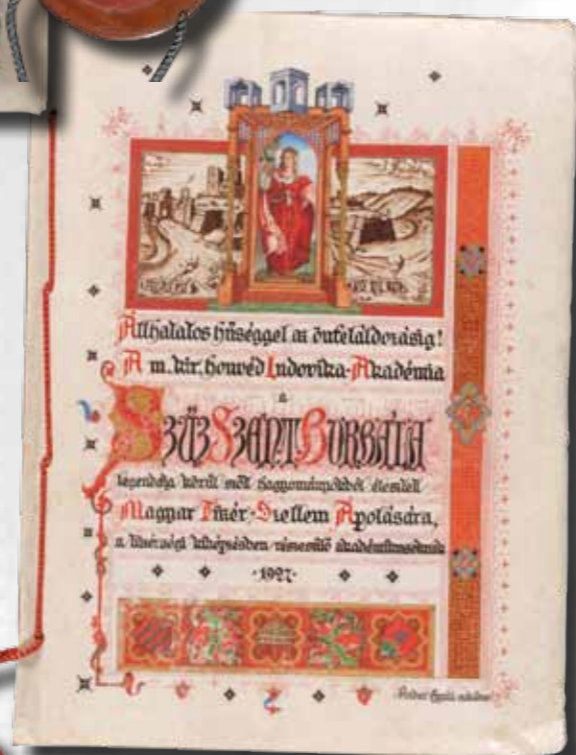 Állhatatos hűséggel az önfeláldozásig!
A m. kir. honvéd Ludovika-Akadémia
a
SZŰZ SZENT BORBÁLA
legendája körül szőtt hagyományokból élesztett
Magyar Tüzér-Szellem Ápolására,
a tüzérségi kiképzésben részesülő akadémikusoknak
·1927·